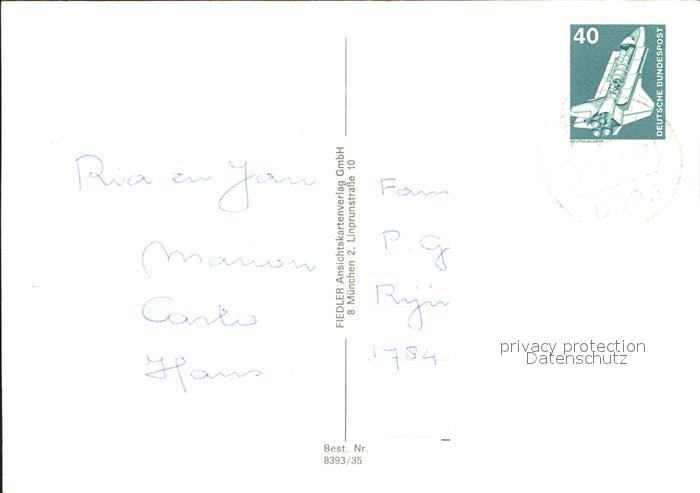 40
DEUTSCHE BUNDESPOST
WELTRAUMLABOR
Ria en Jan
Marion
Carlo
Hans
FIEDLER Ansichtskartenverlag GmbH
8 München 2, Linprunstraße 10
Fam
P. G
1784
privacy protection
Datenschutz
Best. Nr.
8393/35